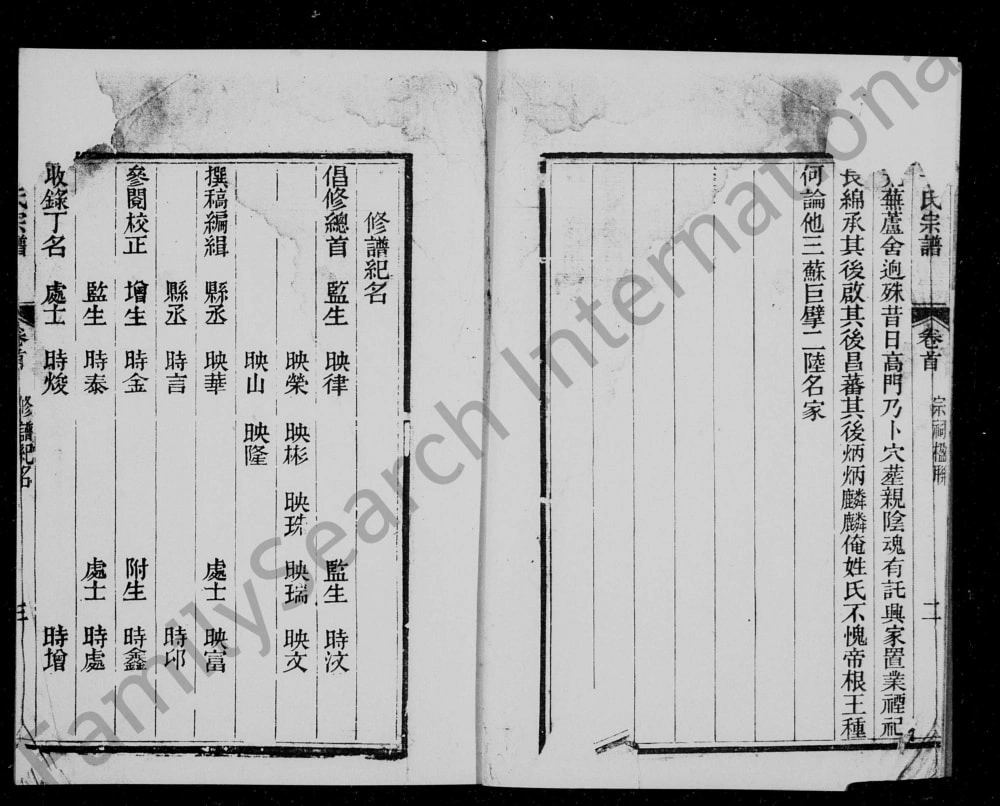 氏宗譜 卷首 宗祠楹聯 二
蕪蘆舍迥殊昔日高門乃卜穴塟親陰魂有託興家置業禋祀
長綿承其後啟其後昌蕃其後炳炳麟麟俺姓氏不愧帝根王種
何論他三蘇巨擘二陸名家
2
修譜紀名
倡修總首 監生 映律 監生 時汶
映榮 映彬 映珠 映瑞 映文
映山 映隆
撰稿編緝 縣丞 映華 處士 映富
縣丞 時言 時邛
參閱校正 增生 時金 附生 時鑫
監生 時泰 處士 時處
收錄丁名 處士 時焌 時增
氏宗譜 卷首 修譜紀名 三
FamilySearch International